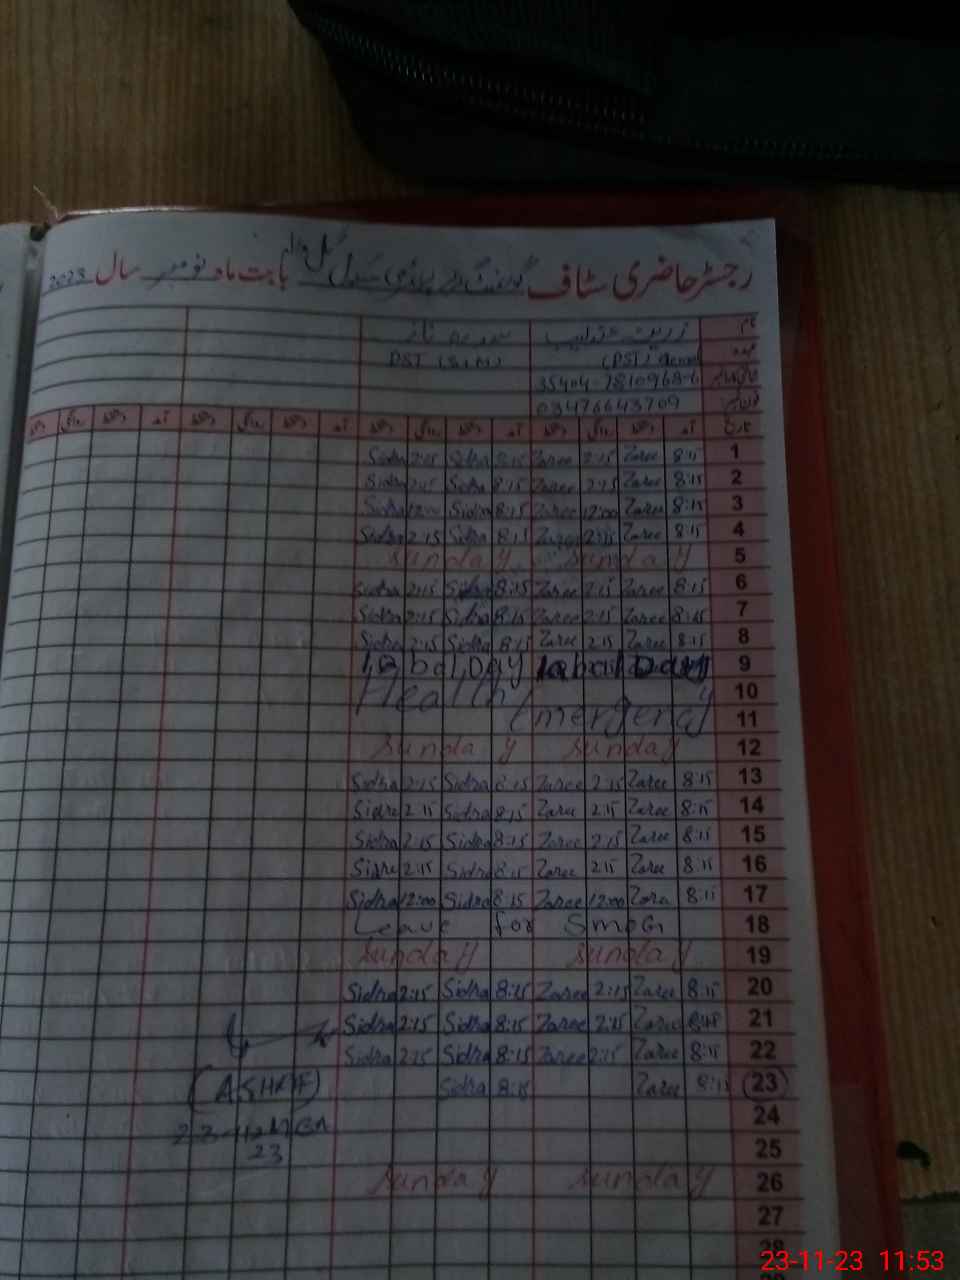 رجسٹر حاضری سٹاف گورنمنٹ گرلز پرائمری سکول بابت ماہ نومبر سال 2023
نام
عہدہ PST (PST)
35404-7810968-6
03476643709
تاریخ آمد دستخط روانگی دستخط آمد دستخط روانگی دستخط آمد دستخط روانگی دستخط آمد دستخط روانگی دستخط
1 8:15 Zaree 2:15 Zaree 8:15 Sidra 2:15 Sidra
2 8:15 Zaree 2:15 Zaree 8:15 Sidra 2:15 Sidra
3 8:15 Zaree 12:00 Zaree 8:15 Sidra 12:00 Sidra
4 8:15 Zaree 2:15 Zaree 8:15 Sidra 2:15 Sidra
5 Sunday Sunday
6 8:15 Zaree 2:15 Zaree 8:15 Sidra 2:15 Sidra
7 8:15 Zaree 2:15 Zaree 8:15 Sidra 2:15 Sidra
8 8:15 Zaree 2:15 Zaree 8:15 Sidra 2:15 Sidra
9 Iqbal Day Iqbal Day
10 Health
11 Emergency
12 Sunday Sunday
13 8:15 Zaree 2:15 Zaree 8:15 Sidra 2:15 Sidra
14 8:15 Zaree 2:15 Zaree 8:15 Sidra 2:15 Sidra
15 8:15 Zaree 2:15 Zaree 8:15 Sidra 2:15 Sidra
16 8:15 Zaree 2:15 Zaree 8:15 Sidra 2:15 Sidra
17 8:15 Zaree 12:00 Zaree 8:15 Sidra 12:00 Sidra
18 Leave for Smog
19 Sunday Sunday
20 8:15 Zaree 2:15 Zaree 8:15 Sidra 2:15 Sidra
21 Zaree 2:15 Zaree 8:15 Sidra 2:15 Sidra
22 8:15 Zaree 2:15 Zaree 8:15 Sidra 2:15 Sidra
23 8:15 Zaree 8:15 Sidra
(ASHRAF)
24
23-11
23
25
26 Sunday Sunday
27
28
23-11-23 11:53